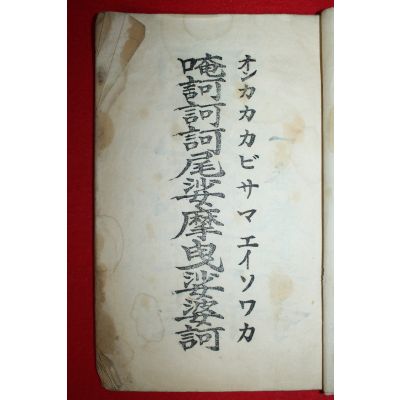 オンカカカビサマエイソワカ
唵訶訶訶尾娑摩曳娑婆訶